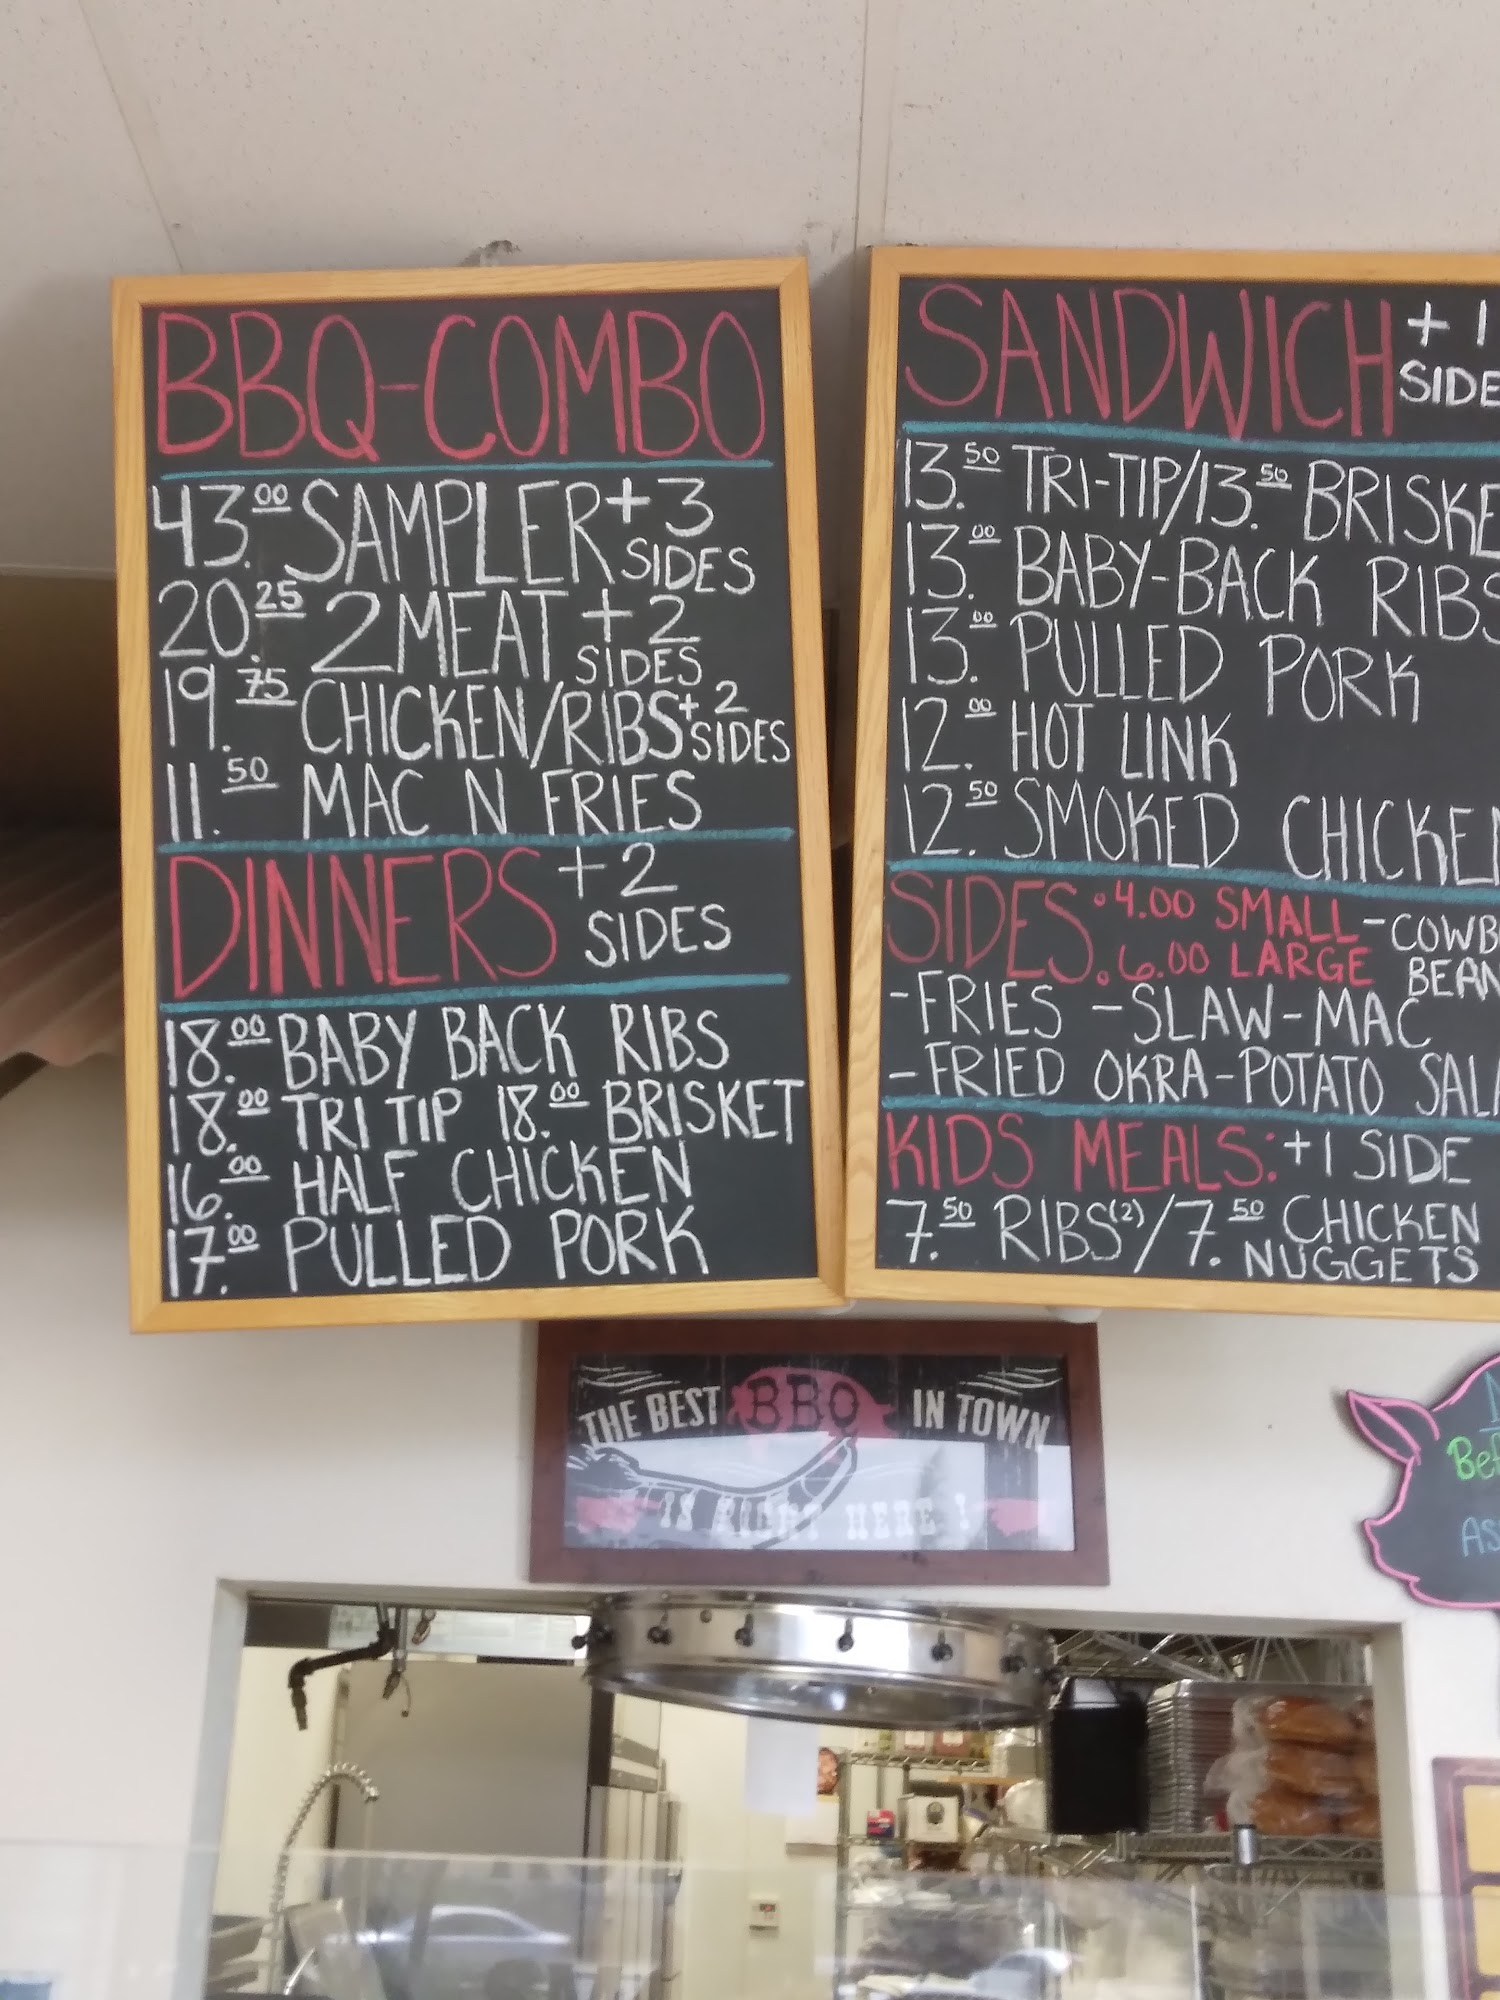 BBQ-COMBO
43.00 SAMPLER +3 SIDES
20.25 2 MEAT +2 SIDES
19.75 CHICKEN/RIBS +2 SIDES
11.50 MAC N FRIES
DINNERS +2 SIDES
18.00 BABY BACK RIBS
18.00 TRI TIP 18.00 BRISKET
16.00 HALF CHICKEN
17.00 PULLED PORK
SANDWICH +1 SIDE
13.50 TRI-TIP/13.50 BRISKE
13.00 BABY-BACK RIBS
13.00 PULLED PORK
12.00 HOT LINK
12.50 SMOKED CHICKEN
SIDES: 4.00 SMALL -COWB
6.00 LARGE BEAN
-FRIES -SLAW-MAC
-FRIED OKRA-POTATO SALA
KIDS MEALS: +1 SIDE
7.50 RIBS(2)/7.50 CHICKEN NUGGETS
THE BEST BBQ IN TOWN
IS RIGHT HERE!